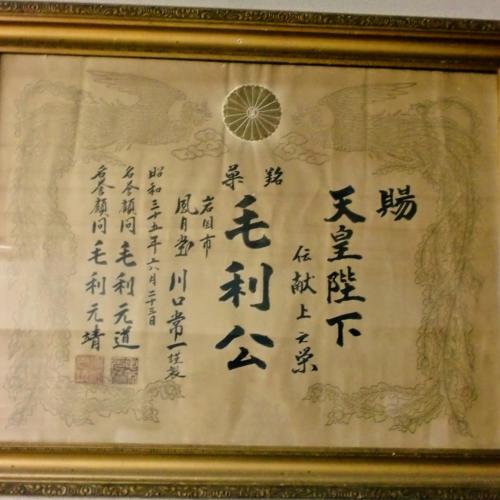 賜
天皇陛下
伝献上之栄
銘菓
毛利公
岩国市
風月堂 川口常一 謹製
昭和三十五年六月二十三日
名誉顧問 毛利元道
名誉顧問 毛利元靖